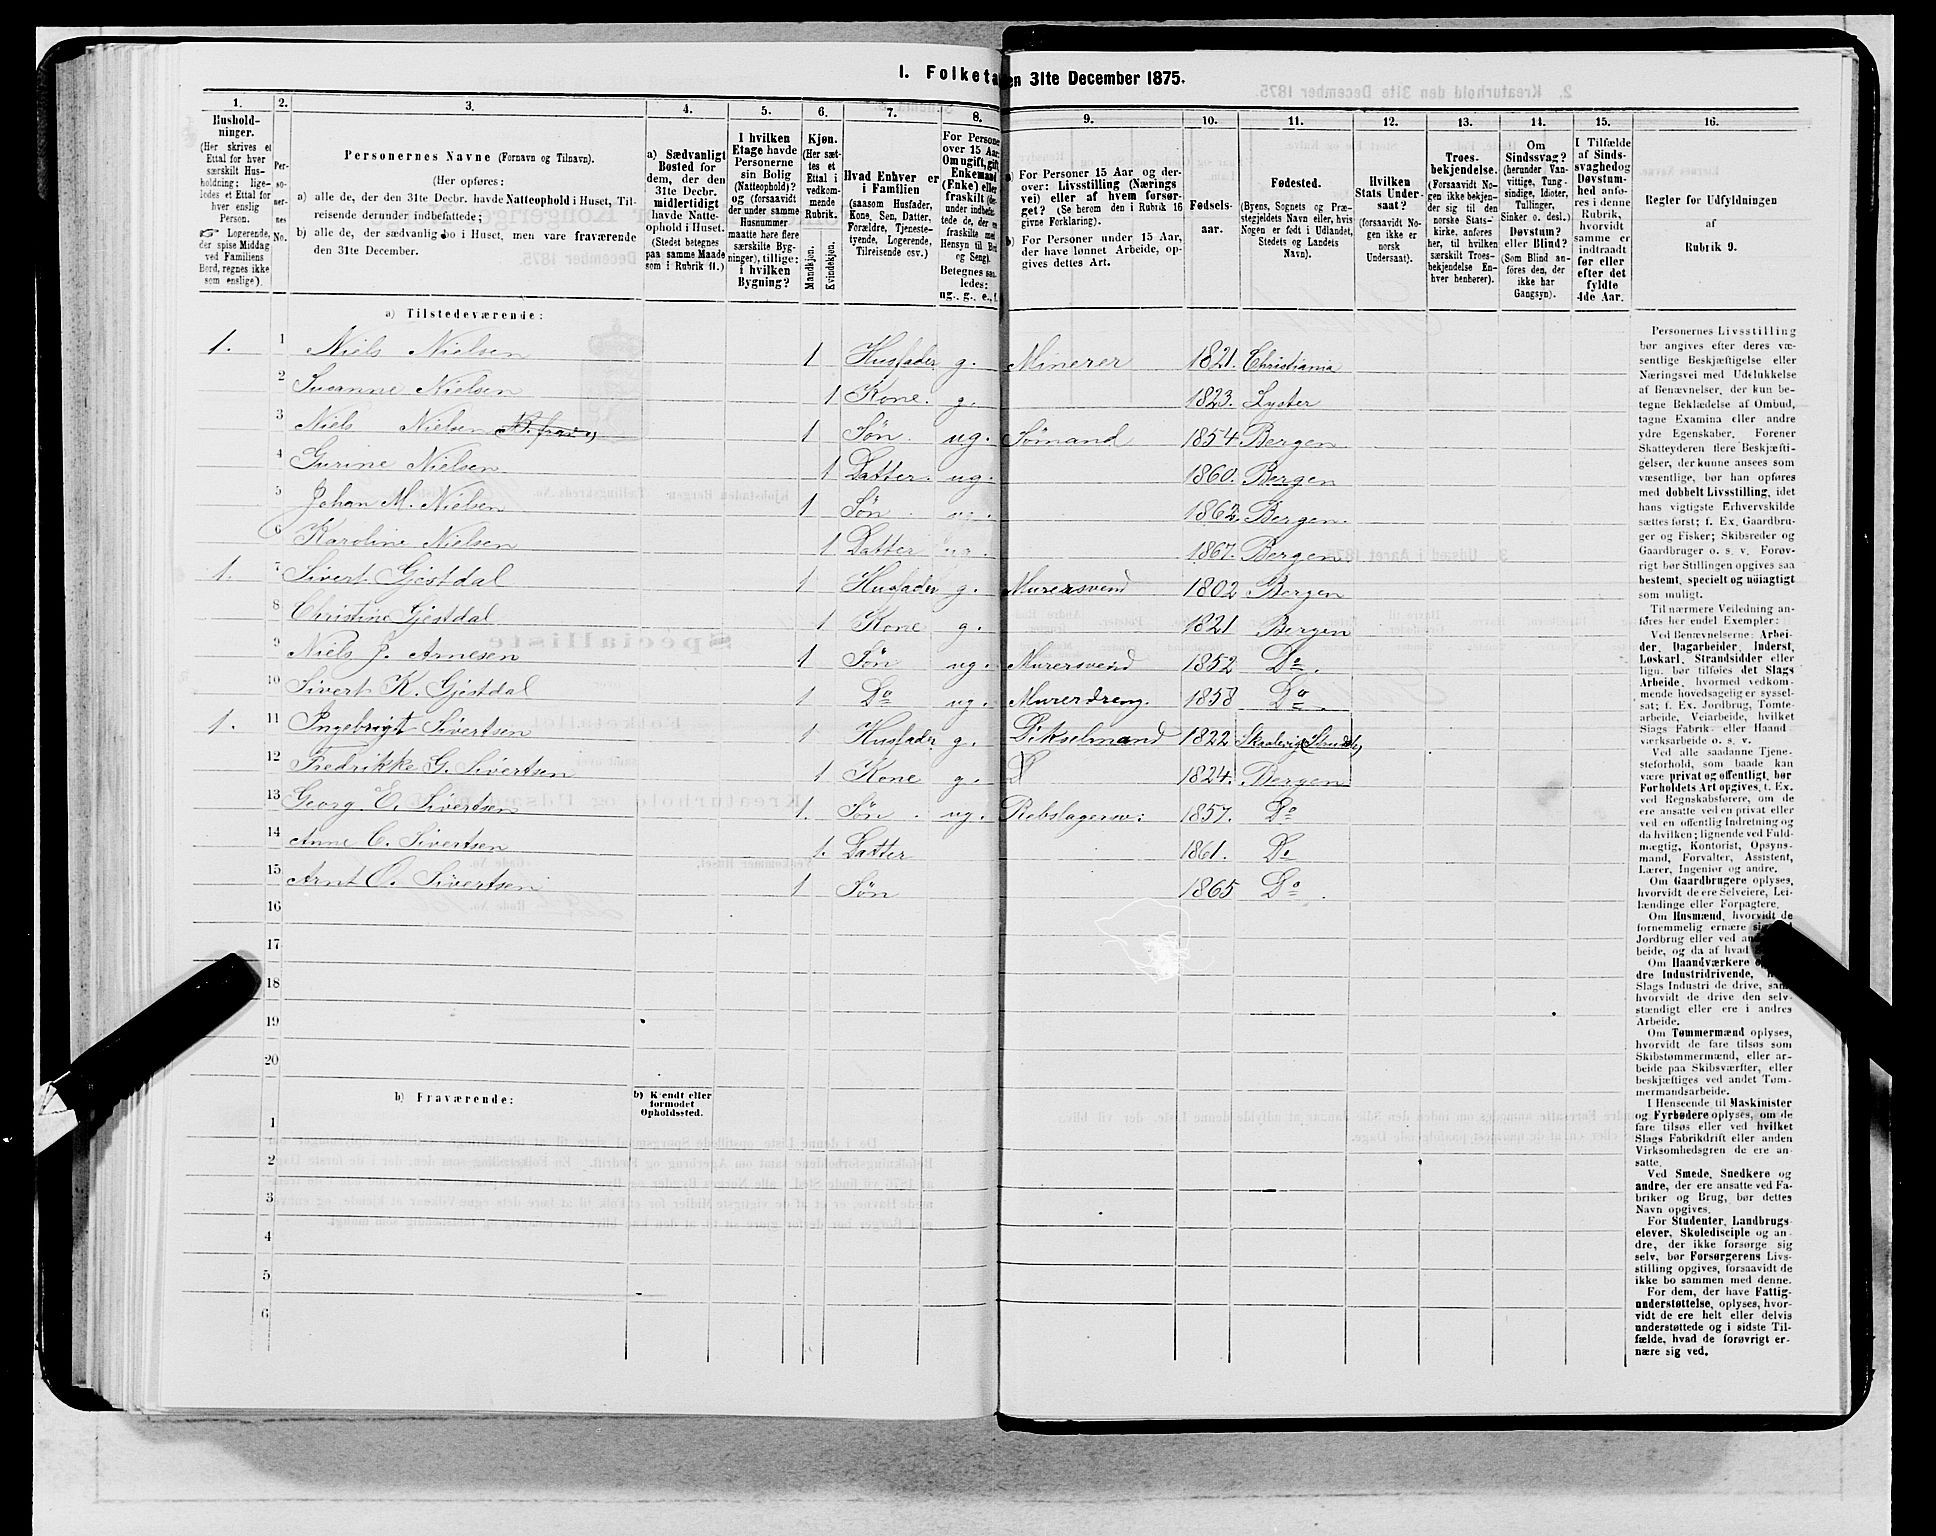 I. Folketa en 31te December 1875.
1.
2.
3.
4.
5.
6.
7.
8.
9.
10.
11.
12.
13.
14.
15.
16.
Hushold-
ninger.
(Her skrives et
Ettal for hver
særskilt Hus-
holdning; lige-
ledes et Ettal for
hver enslig
Person.
☞ Logerende,
der spise Middag
ved Familiens
Bord, regnes ikke
som enslige).
Per-
so-
ner-
nes
No.
Personernes Navne (Fornavn og Tilnavn).
(Her opføres:
a) alle de, der den 31te Decbr. havde Natteophold i Huset, Til-
reisende derunder indbefattede;
b) alle de, der sædvanlig bo i Huset, men vare fraværende
den 31te December.
a) Sædvanligt
Bosted for
dem, der den
31te Decbr.
midlertidigt
havde Natte-
ophold i Huset.
(Stedet betegnes
paa samme Maade
som i Rubrik 11.)
I hvilken
Etage havde
Personerne
sin Bolig
(Natteophold)?
og (forsaavidt
der under samme
Husnummer
maatte høre flere
særskilte Byg-
ninger), tillige:
i hvilken
Bygning?
Kjøn.
(Her sæt-
tes et
Ettal i
vedkom-
mende
Rubrik.
Mandkjøn.
Kvindekjøn.
Hvad Enhver er
i Familien
(saasom Husfader,
Kone, Søn, Datter,
Forældre, Tjeneste-
tyende, Logerende,
Tilreisende osv.)
For Persone
over 15 Aar
Om ugift, gift
Enkemand
(Enke) eller
fraskilt (der-
under indbefat-
tede de, der ere
fraskilte med
Hensyn til Bo
og Seng).
Betegnes saa-
ledes:
ug., g., e., f.
a) For Personer 15 Aar og der-
over: Livsstilling (Nærings
vei) eller af hvem forsør-
get? (Se herom den i Rubrik 16
givne Forklaring).
b) For Personer under 15 Aar,
der have lønnet Arbeide, op-
gives dettes Art.
Fødsels-
aar.
Fødested.
(Byens, Sognets og Præ-
stegjeldets Navn eller, hvis
Nogen er født i Udlandet,
Stedets og Landets
Navn).
Hvilken
Stats Under-
saat?
(forsaavidt No-
gen ikke er
norsk
Undersaat).
Troes-
bekjendelse.
(Forsaavidt No-
gen ikke bekjen-
der sig til den
norske Stats-
kirke, anføres
her, til hvilken
særskilt Troes-
bekjendelse En-
hver henhører).
Om
Sindssvag?
(herunder Van-
vittige, Tung-
sindige, Idioter,
Tullinger,
Sinker o. desl.)
Døvstum?
eller Blind?
(Som Blind an-
føres den, der
ikke har
Gangsyn).
I Tilfælde
af Sinds-
svaghed og
Døvstum-
hed anfø-
res i denne
Rubrik,
hvorvidt
samme er
indtraadt
før eller
efter det
fyldte
4de Aar.
Regler for Udfyldningen
af
Rubrik 9.
a) Tilstedeværende:
1. 1 Niels Nielsen 1 Husfader g. Minerer 1821. Christiania
2 Susanne Nielsen 1 Kone. g. 1823. Lyster
3 Niels Nielsen 1 Søn. ug. Sømand 1854. Bergen
4 Gurine Nielsen 1 Datter. ug. 1860. Bergen
5 Johan M. Nielsen 1 Søn. 1862. Bergen.
6 Karoline Nielsen 1 Datter 1867. Bergen
1. 7 Sivert Gjestdal 1 Husfader g. Murersvend 1802 Bergen
8 Christine Gjestdal 1 Kone g. 1821 Bergen
9 Niels J. Arnesen 1 Søn ug. Murersvend 1852 Do.
10 Sivert K. Gjestdal 1 Do ug. Murerdreng. 1858 Do.
1. 11 Ingebrigt Sivertsen 1 Husfader g. Pikselmand 1822
12 Fredrikke G. Sivertsen 1 Kone g. 1824. Bergen
13 Georg E. Sivertsen 1. Søn. ug. Rebslagersv: 1857. Do
14 Anne C. Sivertsen 1. Datter 1861. Do
15 Arnt O. Sivertsen 1 Søn 1865 Do.
16
17
18
19
20
b) Fraværende:
b) Kjendt eller
formodet
Opholdssted.
1
2
3
4
5
6
Personernes Livsstilling
bør angives efter deres væ-
sentlige Beskjæftigelse eller
Næringsvei med Udelukkelse
af Benævnelser, der kun be-
tegne Beklædelse af Ombud,
tagne Examina eller andre
ydre Egenskaber. Forener
Skatteyderen flere Beskjæfti-
gelser, der kunne ansees som
væsentlige, bør han opføres
med dobbelt Livsstilling, idet
hans vigtigste Erhvervskilde
sættes først; f. Ex. Gaardbru-
ger og Fisker; Skibsreder og
Gaardbruger o. s. v. Forøv-
rigt bør Stillingen opgives saa
bestemt, specielt og nøiagtigt
som muligt.
Til nærmere Veiledning an-
føres her endel Exempler:
Ved Benævnelserne: Arbei-
der, Dagarbeider, Inderst,
Løskarl, Strandsidder eller
lign. bør tilføies det Slags
Arbeide, hvormed vedkom-
mende hovedsagelig er syssel-
sat; f. Ex. Jordbrug, Tomte-
arbeide, Veiarbeide, hvilket
Slags Fabrik- eller Haand-
værksarbeide o. s. v.
Ved alle saadanne Tjene-
steforhold, som baade kan
være privat og offentligt, bør
Forholdets Art opgives, f. Ex.
ved Regnskabsførere, om de
ere ansatte ved en privat eller
ved en offentlig Indretning og
da hvilken; lignende ved Fuld-
mægtig, Kontorist, Opsyns-
mand, Forvalter, Assistent,
Lærer, Ingeniør og andre.
Om Gaardbrugere oplyses,
hvorvidt de ere Selveiere, Lei-
lændinge eller Forpagtere.
Om Husmænd, hvorvidt de
fornemmelig ernære si
Jordbrug eller ved an
beide, og da af hvad
Om Haandværkere o
dre Industridrivende,
Slags Industri de drive, sam
hvorvidt de drive den selv-
stændigt eller ere i andres
Arbeide.
Om Tømmermænd oplyses,
hvorvidt de fare tilsøs som
Skibstømmermænd, eller ar-
beide paa Skibsværfter, eller
beskjæftiges ved andet Tøm-
mermandsarbeide.
I Henseende til Maskinister
og Fyrbødere oplyses, om de
fare tilsøs eller ved hvilket
Slags Fabrikdrift eller anden
Virksomhedsgren de ere an-
satte.
Ved Smede, Snedkere og
andre, der ere ansatte ved Fa-
briker og Brug, bør dettes
Navn opgives.
For Studenter, Landbrugs-
elever, Skoledisciple og an-
dre, der ikke forsørge sig
selv, bør Forsørgerens Livs-
stilling opgives, forsaavidt de
ikke bo sammen med denne.
For dem, der have Fattig-
understøttelse, oplyses, hvor-
vidt de ere helt eller delvis
understøttede og i sidste Til-
fælde, hvad de forøvrigt er-
nære sig ved.